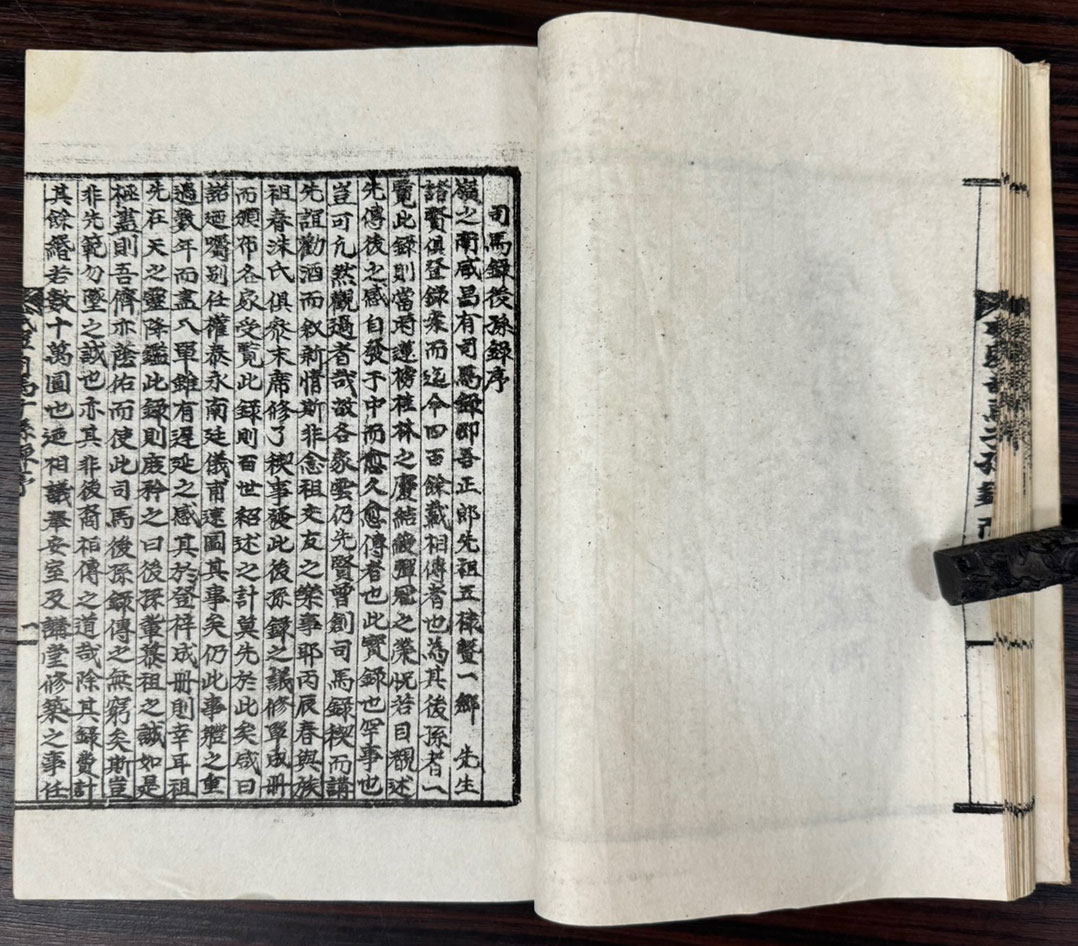 司馬錄後孫錄序
嶺之南咸昌有司馬錄即吾正郎先祖五棣曁一鄉 先生
諸賢俱登錄案而迄今四百餘載相傳者也為其後孫者一
覽此錄則當時蓮榜桂林之慶結綬彈冠之榮怳若目覩述
先傳後之感自發于中而愈久愈傳者也此實錄也罕事也
豈可尢然觀過者哉故各家雲仍先賢曾創司馬錄稧而講
先誼勸酒而敘新情斯非念祖交友之樂事耶丙辰春與族
祖春洙氏俱參末席修了稧事發此後孫錄之議修單成冊
而頒布各家受覽此錄則百世紹述之計莫先於此矣咸曰
諾迺囑别任權泰永南廷儀甫遠圖其事矣仍此事軆之重
過數年而盡入單雖有遲延之感其於登梓成册則幸耳祖
先在天之靈降鑑此錄則庶矜之曰後孫輩慕祖之誠如是
極盡則吾儕亦蔭佑而使此司馬後孫錄傳之無窮矣斯豈
非先範勿墜之誠也亦其非後裔相傳之道哉除其錄費計
其餘緡若數十萬圓也迺相議奉安室及講堂修築之事任
序
一